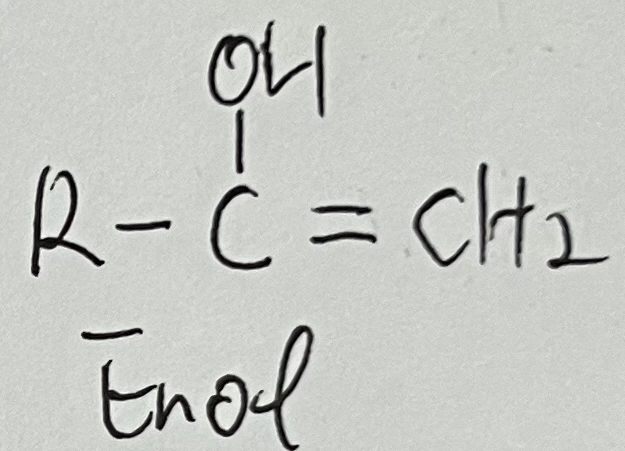 OH
R-C=CH2
Enol